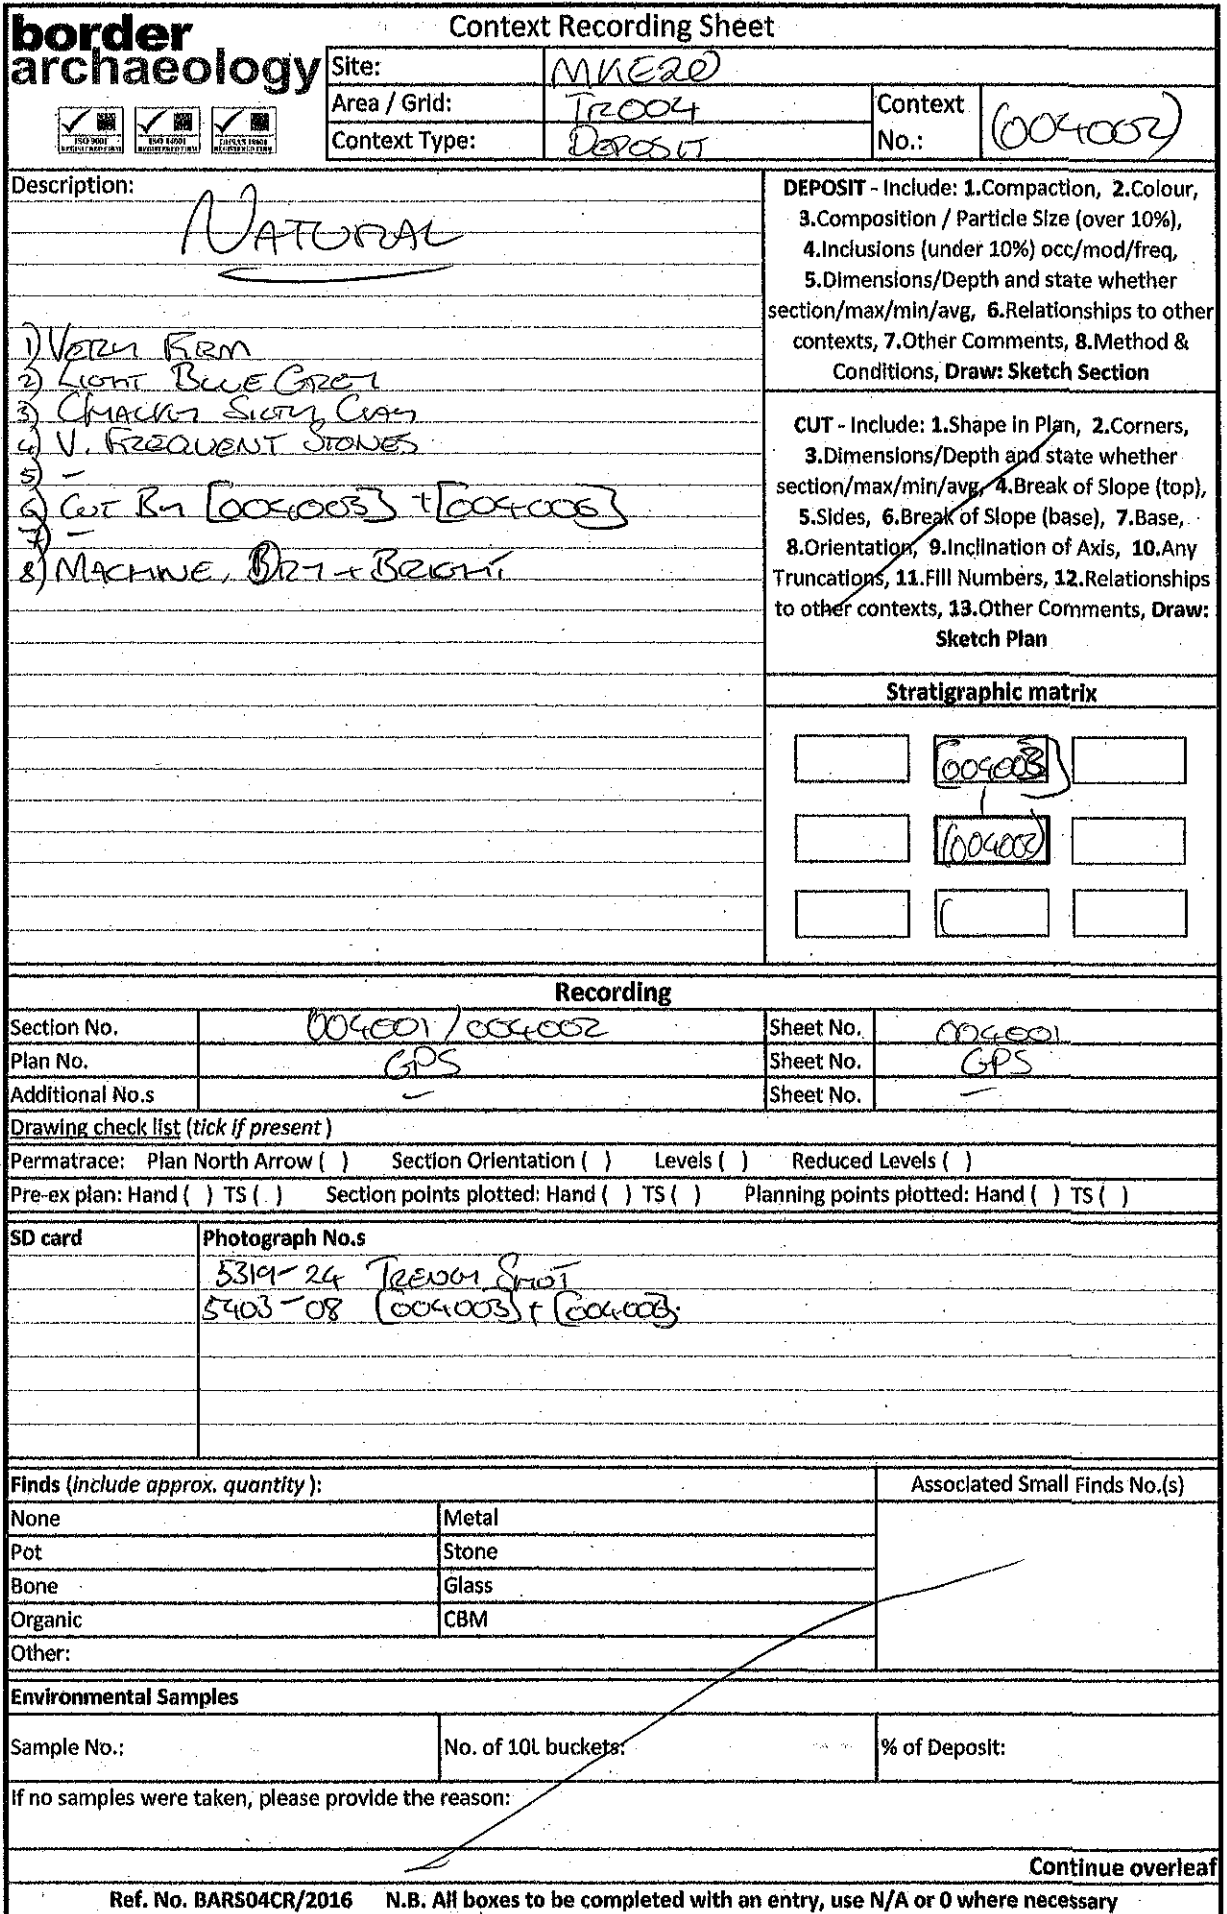 border
archaeology
Context Recording Sheet
Site: MKE20
Area / Grid: TR004
Context No.: (004002)
Context Type: DEPOSIT
ISO 9001
REGISTERED FIRM
ISO 14001
REGISTERED FIRM
OHSAS 18001
REGISTERED FIRM
Description:
NATURAL
1) VERY FIRM
2) LIGHT BLUE GREY
3) CHALKY SILTY CLAY
4) V. FREQUENT STONES
5) -
6) CUT BY [004003] + [004006]
7) -
8) MACHINE, DRY + BRIGHT
DEPOSIT - Include: 1.Compaction, 2.Colour,
3.Composition / Particle Size (over 10%),
4.Inclusions (under 10%) occ/mod/freq,
5.Dimensions/Depth and state whether
section/max/min/avg, 6.Relationships to other
contexts, 7.Other Comments, 8.Method &
Conditions, Draw: Sketch Section
CUT - Include: 1.Shape in Plan, 2.Corners,
3.Dimensions/Depth and state whether
section/max/min/avg, 4.Break of Slope (top),
5.Sides, 6.Break of Slope (base), 7.Base,
8.Orientation, 9.Inclination of Axis, 10.Any
Truncations, 11.Fill Numbers, 12.Relationships
to other contexts, 13.Other Comments, Draw:
Sketch Plan
Stratigraphic matrix
[004003]
(004002)
(
Recording
Section No. 004001 / 004002 Sheet No. 004001
Plan No. GPS Sheet No. GPS
Additional No.s - Sheet No. -
Drawing check list (tick if present)
Permatrace: Plan North Arrow ( ) Section Orientation ( ) Levels ( ) Reduced Levels ( )
Pre-ex plan: Hand ( ) TS ( ) Section points plotted: Hand ( ) TS ( ) Planning points plotted: Hand ( ) TS ( )
SD card Photograph No.s
5319-24 TRENCH SHOT
5403-08 [004003] +
Finds (include approx. quantity): Associated Small Finds No.(s)
None Metal
Pot Stone
Bone Glass
Organic CBM
Other:
Environmental Samples
Sample No.: No. of 10L buckets: % of Deposit:
If no samples were taken, please provide the reason:
Continue overleaf
Ref. No. BARS04CR/2016 N.B. All boxes to be completed with an entry, use N/A or 0 where necessary